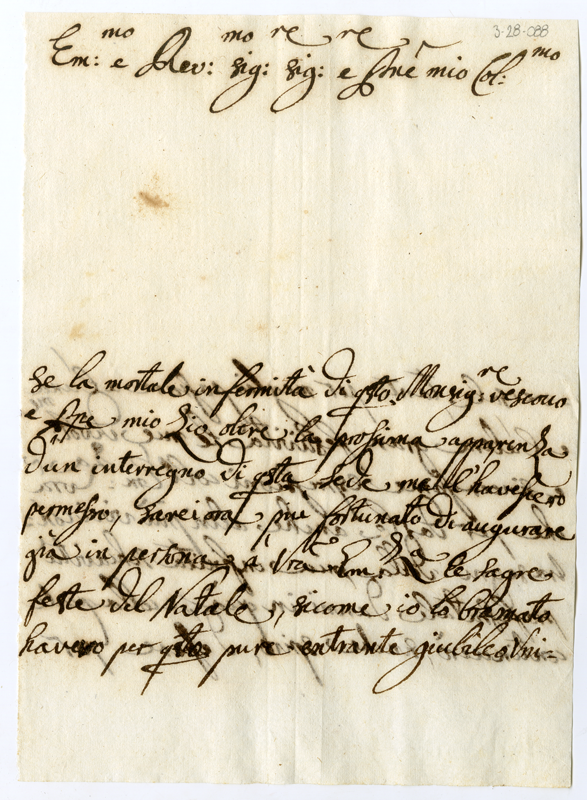 3-28-088
Em:mo e Rev:mo sig:re sig:re e Pnē mio Col:mo
se la mortale infermità di qsto Monsig:re vescovo
e Pnē mio Zio oltre la prossima apparenza
d'un interregno di qsta sede me l'havessero
permesso, sarei ora più fortunato di augurare
già in persona à Vra Em:za le sagre
feste del Natale, sicome io lo bramato
havevo per qsto pure entrante giubileo Vni=